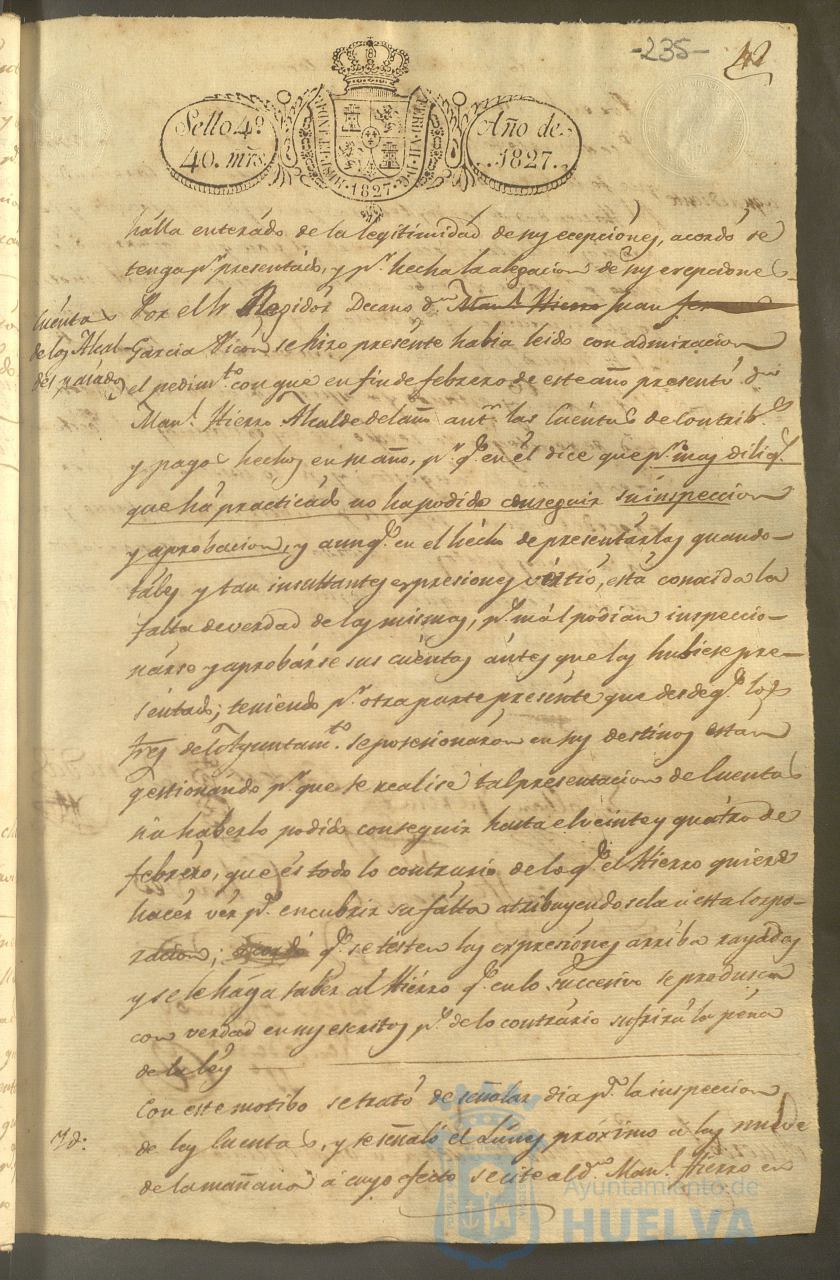 -235- 42
Sello 4º
40. mrs
HISP. ET IND. R. 1827. FERD. VII. D. G.
Año de
1827.
hálla enterádo de la legitimidad de sus ecepciónes, acordó se
tenga pr. presentádo, y pr. hecha la alegacion de sus ecepciones
Cuéntas
de los Alcal-
des pasados
Por el Sr Regidór Decano dn. Manl. Hierro Juan
Garcia Vicon se hizo presénte habia leido con admiracion
el pedimto. con que en fin de febrero de este año presentó dn
Manl. Hierro Alcalde del año antr. las Cuéntas de Contribs.
y pagos hechos en su año, pr. qe. en el dice que pr. mas diligs.
que há practicádo no ha podido conseguir su inspeccion
y aprobacion, y aunqe. en el hécho de presentárlas quando
táles y tan insultantes expresiones virtió, está conocida la
falta de verdad de las mismas, pr. mál podian inspeccio-
nárse y aprobárse sus cuéntas ántes que las hubiese pre-
sentado; teniendo pr. otra parte presénte que desde qe. los
Sres. de este Ayuntamto. se posesionáron en sus destinos están
gestionando pr. que se realise tal presentacion de Cuentas
sin haberlo podido conseguir hasta el veinte y quátro de
febréro, que és todo lo contrario de lo qe. el Hierro quiere
hacér vér pr. encubrir su fálta atribuyendosela á esta Corpo-
racion; acordó qe. se tésten las expresiónes arriba rayádas
y se le hága saber al Hiérro qe. en lo succesivo se produsca
con verdad en sus escritos, pr. de lo contrário sufrirá la péna
de la ley
Yd.
Con este motibo se trató de señalar dia pr. la inspeccion
de las Cuentas, y se señaló el Lúnes proximo a las nueve
de la mañana á cuyo efecto se cite al dn. Manl. Hierro en
Ayuntamiento de
HUELVA